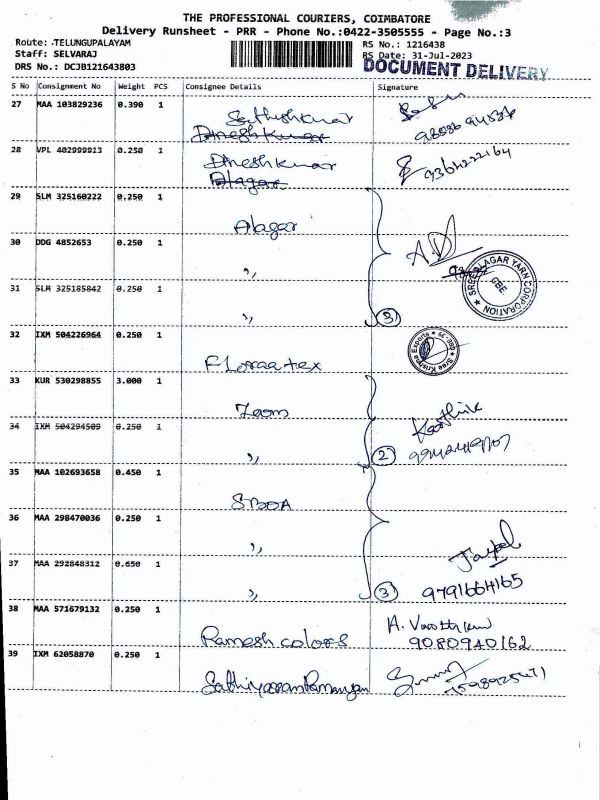 THE PROFESSIONAL COURIERS, COIMBATORE
Delivery Runsheet - PRR - Phone No.:0422-3505555 - Page No.:3
Route: .TELUNGUPALAYAM
Staff: SELVARAJ
DRS No.: DCJB121643803
RS No.: 1216438
RS Date: 31-Jul-2023
DOCUMENT DELIVERY
S No Consignment No Weight PCS Consignee Details Signature
27 MAA 103829236 0.390 1
Sathishkumar
Dineshkumar
28 VPL 402999913 0.250 1
Dineshkumar
Alagar
9364222164
29 SLM 325160222 0.250 1
Alagar
30 DDG 4852653 0.250 1
,,
SREE ALAGAR YARN CORPORATION CBE
31 SLM 325185842 0.250 1
,,
3
32 IXM 504226964 0.250 1
Floraa tex
Sree Krishna Exports
33 KUR 530298855 3.000 1
Zoom
Karthik
34 IXM 504294509 0.250 1
,,
2
35 MAA 102693658 0.450 1
SBOA
36 MAA 298470036 0.250 1
,,
Jaipal
37 MAA 292848312 0.650 1
,,
3 9791664165
38 MAA 571679132 0.250 1
Ramesh colors
9080940162
39 IXM 62058870 0.250 1